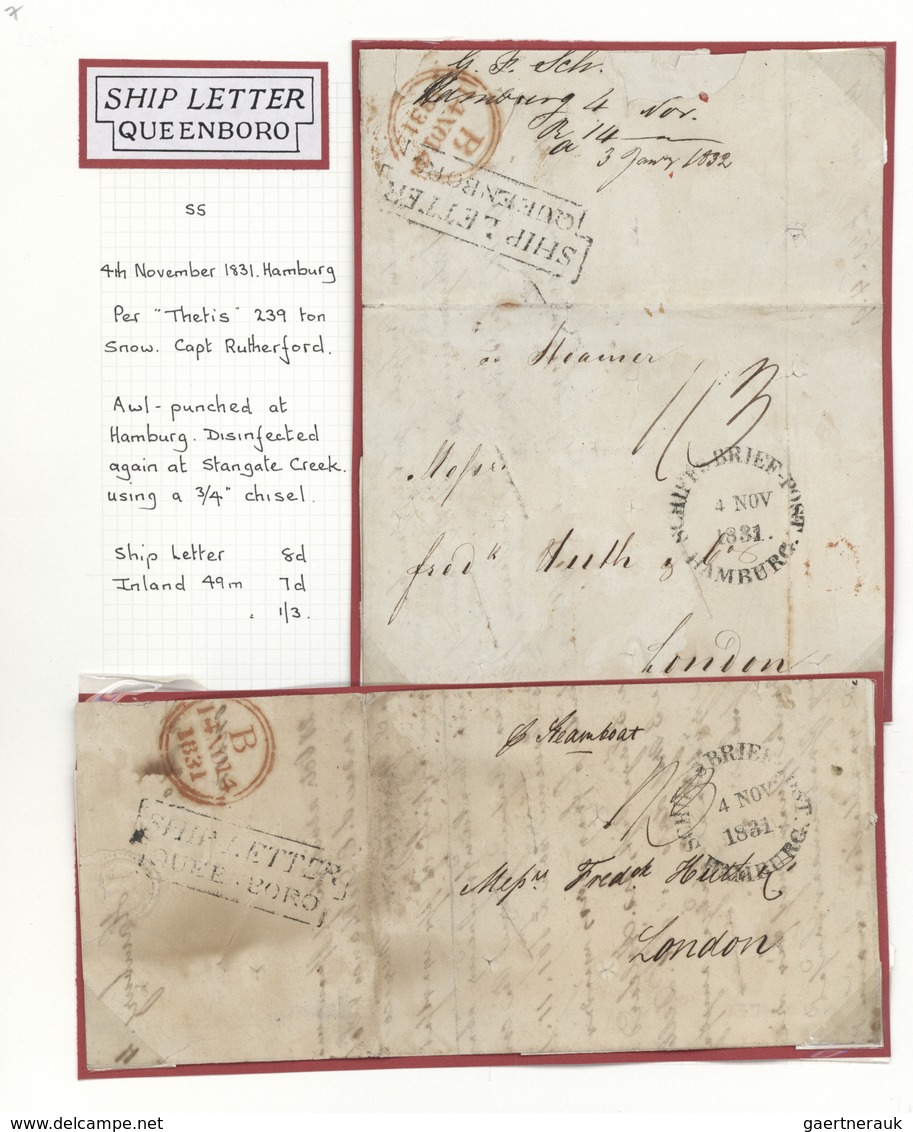 SHIP LETTER
QUEENBORO
SS
4th November 1831. Hamburg
Per "Thetis" 239 ton
Snow. Capt Rutherford.
Awl-punched at
Hamburg. Disinfected
again at Stangate Creek.
using a 3/4" chisel.
Ship Letter 8d
Inland 49m 7d
1/3.
G. F. Sch.
Hamburg 4 Nov.
Ra 14
3 Janry 1832
B
14 NO 14
1831
SHIP LETTER
QUEENBORO
Steamer
1/3
Messrs
Fredk Huth & Co
London
SCHIFFS-BRIEF-POST
4 NOV
1831.
HAMBURG.
B
14 NO 14
1831
SHIP LETTER
QUEENBORO
p Steamboat
1/3
SCHIFFS-BRIEF-POST.
4 NOV
1831
HAMBURG.
Messrs Fredck Huth & Co
London
gaertnerauk